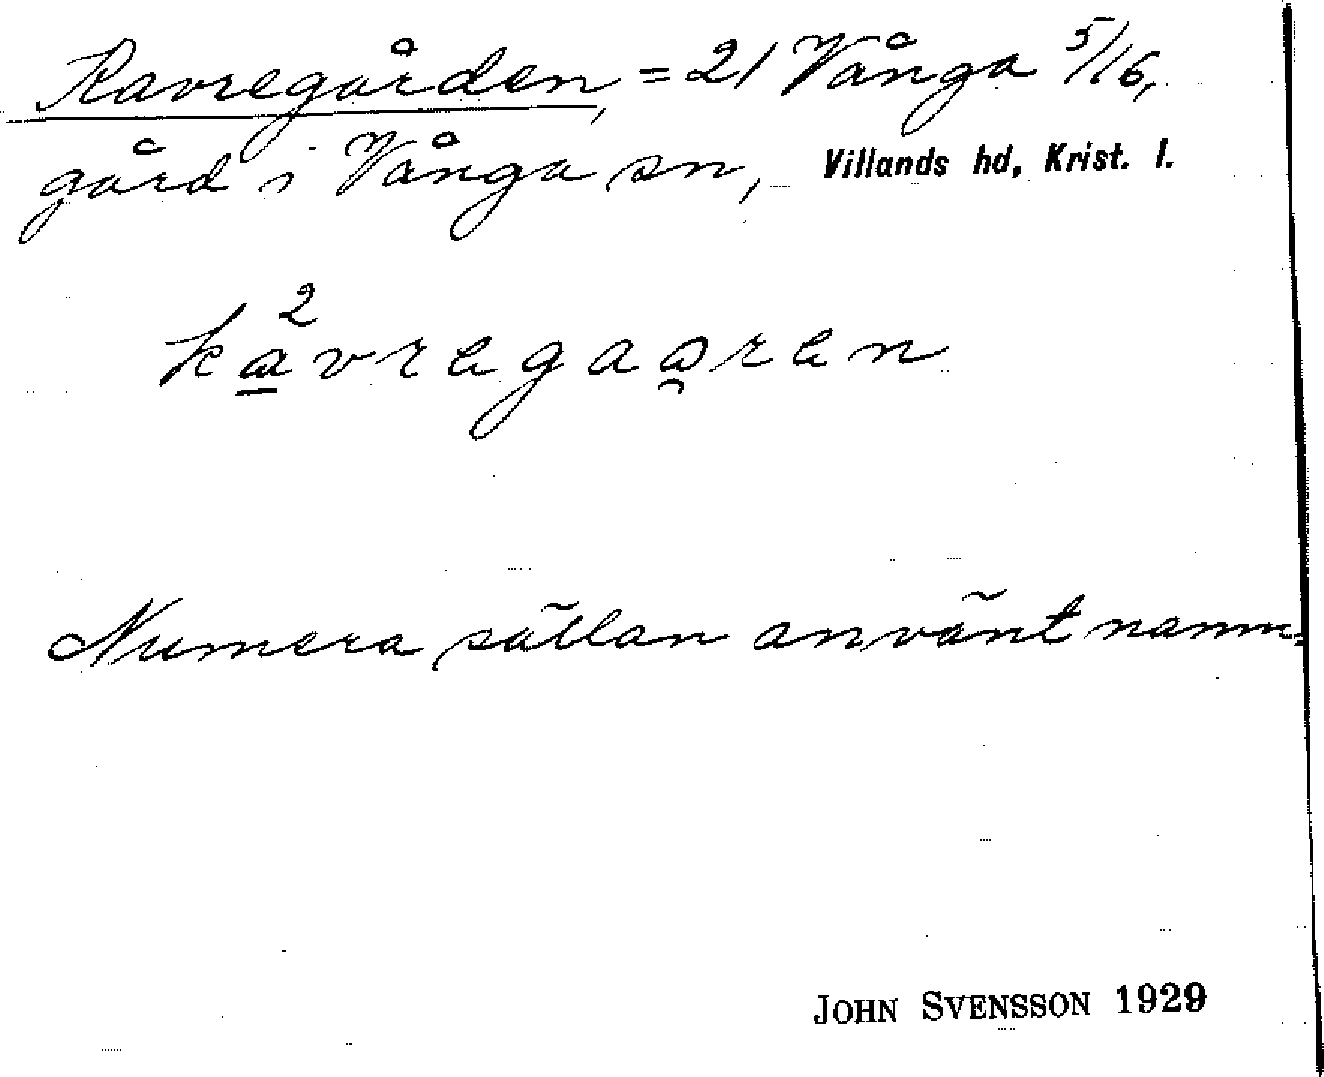 Kavregården, = 21 Vånga 5/16,
gård i Vånga sn, Villands hd, Krist. l.
2
kavregaaren
Numera sällan använt namn.
JOHN SVENSSON 1929